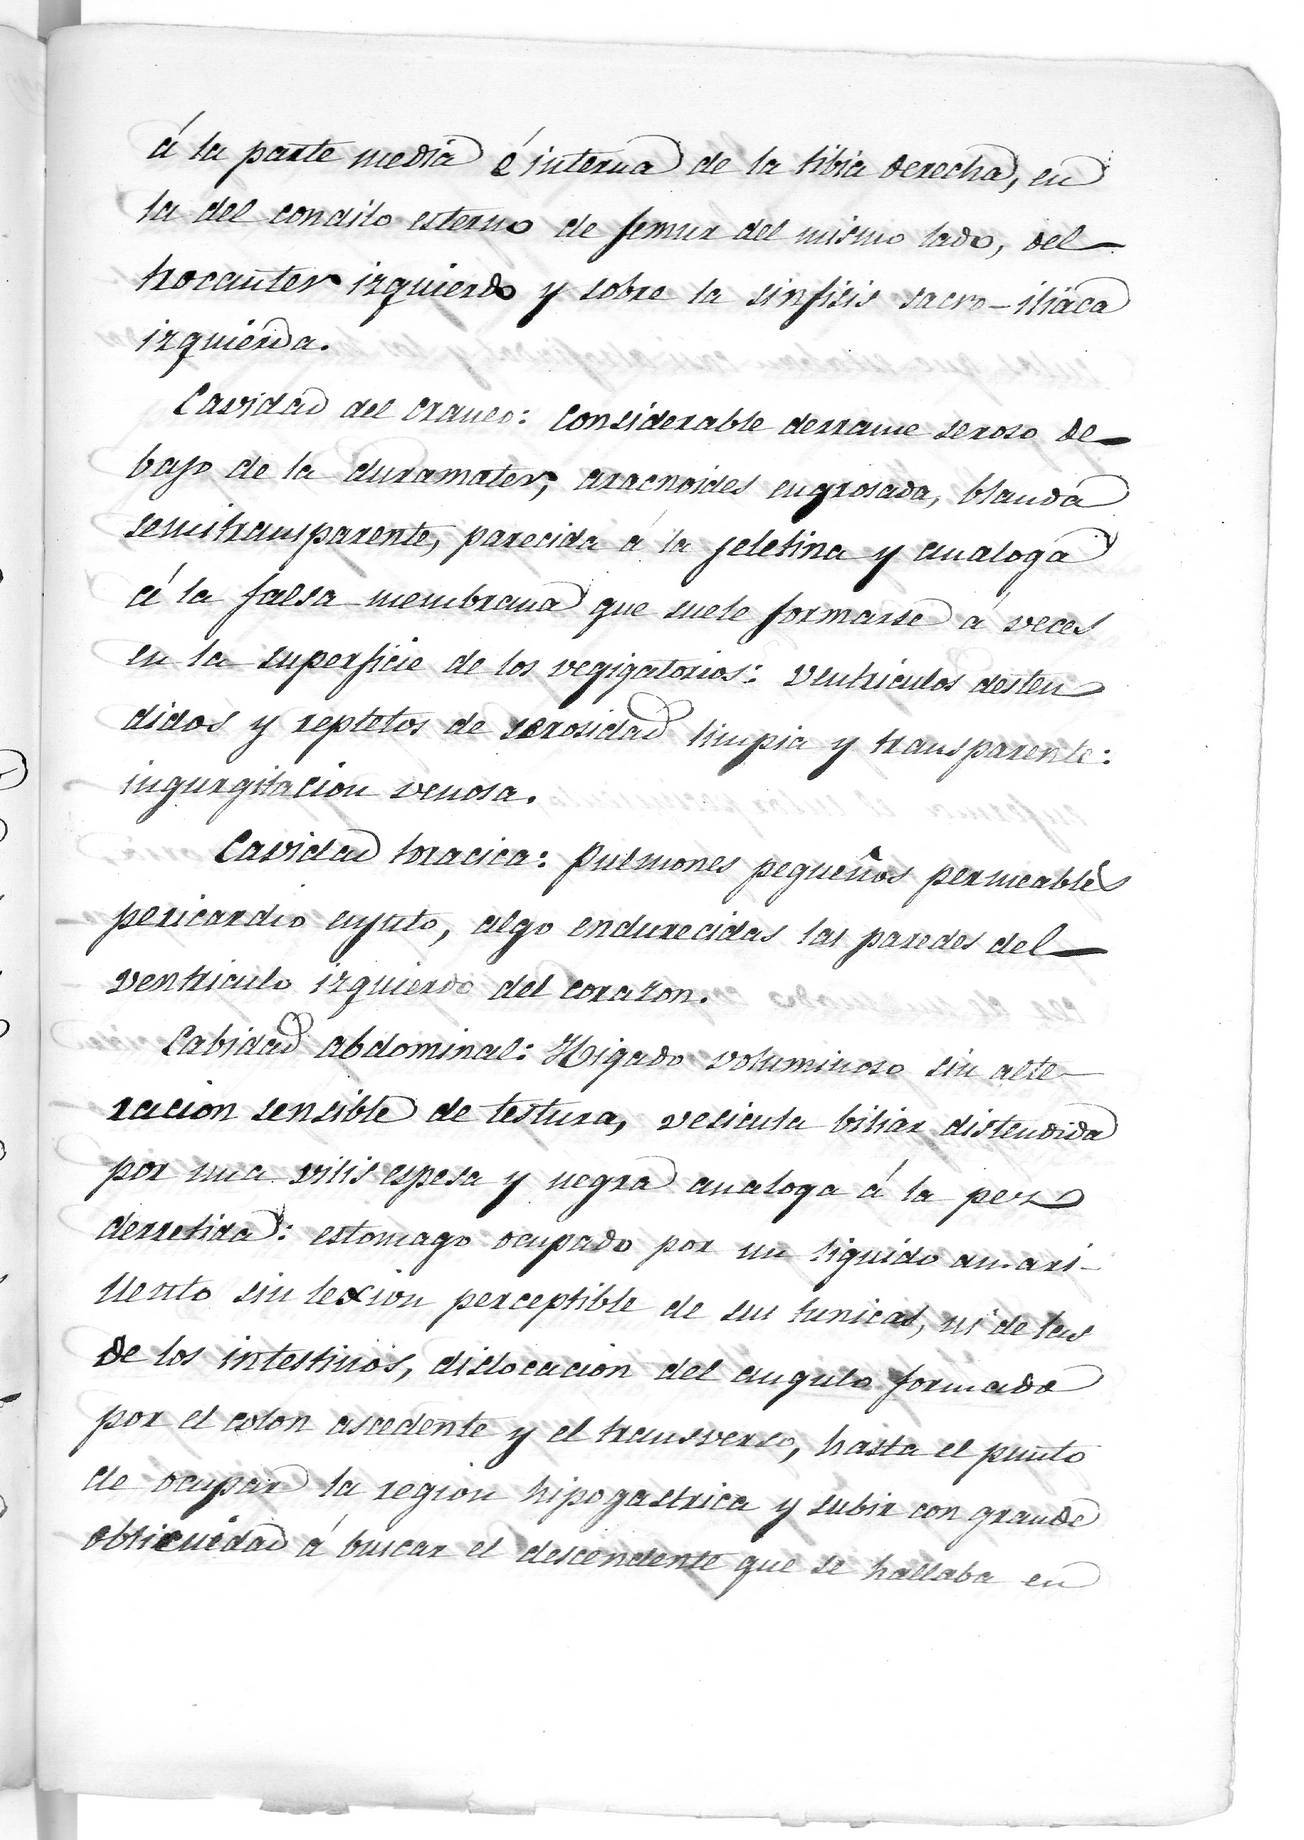 á la parte media é interna de la tibia derecha, en
la del condilo esterno de femur del mismo lado, del
trocanter izquierdo y sobre la sinfisis sacro-iliaca
izquierda.
Cavidad del craneo: Considerable derrame seroso de-
bajo de la duramater, aracnoides engrosada, blanda
semitransparente, parecida á la jeletina y analoga
á la falsa membrana que suele formarse á veces
en la superficie de los vegigatorios: ventriculos desten
didos y repletos de serosidad limpia y transparente:
ingurgitacion venosa.
Cavidad toracica: Pulmones pequeños permeables
pericardio enjuto, algo endurecidas las paredes del
ventriculo izquierdo del corazon.
Cabidad abdominal: Higado voluminoso sin alte-
racion sensible de testura, vesicula biliar distendida
por una vilis espesa y negra analoga á la pez
derretida: estomago ocupado por un liquido amari-
llento sin lexion perceptible de sus tunicas, ni de las
de los intestinos, dislocacion del angulo formado
por el colon ascedente y el transverso, hasta el punto
de ocupar la region hipogastrica y subir con grande
oblicuidad á buscar el descendente que se hallaba en